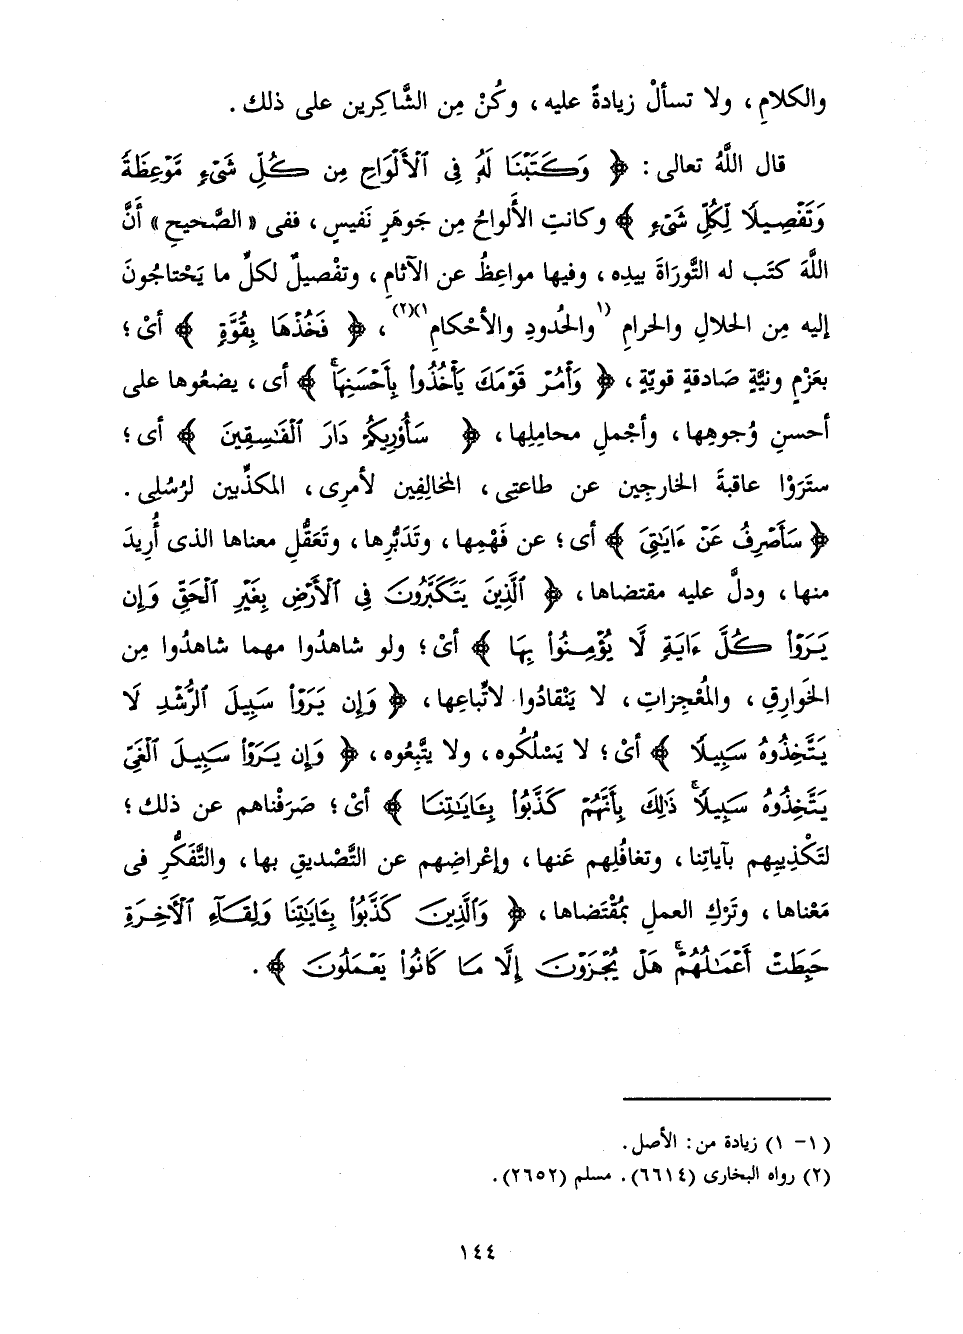 والكلامِ، ولا تسألْ زيادةً عليه، وكُنْ مِن الشَّاكِرين على ذلك.
قال اللَّهُ تعالى: ﴿ وَكَتَبْنَا لَهُۥ فِى ٱلْأَلْوَاحِ مِن كُلِّ شَىْءٍ مَّوْعِظَةً
وَتَفْصِيلًا لِّكُلِّ شَىْءٍ ﴾ وكانتِ الأَلواحُ مِن جَوهَرٍ نَفيسٍ، ففى «الصَّحيحِ» أَنَّ
اللَّهَ كتَب له التَّورَاةَ بيدِه، وفيها مواعِظُ عن الآثامِ، وتفْصيلٌ لكلِّ ما يَحْتاجُونَ
إليه مِن الحَلالِ والحرامِ (١والحُدودِ والأحْكامِ١)(٢)، ﴿ فَخُذْهَا بِقُوَّةٍ ﴾ أىْ؛
بعَزْمٍ ونيَّةٍ صَادقةٍ قويّةٍ، ﴿ وَأْمُرْ قَوْمَكَ يَأْخُذُوا۟ بِأَحْسَنِهَاۚ ﴾ أى، يضعُوها على
أحسنِ وُجوهِها، وأجْملِ محامِلِها، ﴿ سَأُو۟رِيكُمْ دَارَ ٱلْفَٰسِقِينَ ﴾ أى؛
ستَرَوْا عاقبةَ الخارجِين عن طاعتِى، المخالِفِين لأمرِى، المكذِّبين لرُسُلِى.
﴿ سَأَصْرِفُ عَنْ ءَايَٰتِىَ ﴾ أى؛ عن فَهْمِها، وتَدَبُّرِها، وتَعَقُّلِ معناها الذى أُرِيدَ
منها، ودلَّ عليه مقتضاها، ﴿ ٱلَّذِينَ يَتَكَبَّرُونَ فِى ٱلْأَرْضِ بِغَيْرِ ٱلْحَقِّ وَإِن
يَرَوْا۟ كُلَّ ءَايَةٍ لَّا يُؤْمِنُوا۟ بِهَا ﴾ أىْ؛ ولو شاهدُوا مهما شاهدُوا مِن
الخَوارِقِ، والمُعْجزاتِ، لا يَنْقادُوا لاتِّباعِها، ﴿ وَإِن يَرَوْا۟ سَبِيلَ ٱلرُّشْدِ لَا
يَتَّخِذُوهُ سَبِيلًا ﴾ أىْ؛ لا يَسْلُكُوه، ولا يتَّبِعُوه، ﴿ وَإِن يَرَوْا۟ سَبِيلَ ٱلْغَىِّ
يَتَّخِذُوهُ سَبِيلًاۚ ذَٰلِكَ بِأَنَّهُمْ كَذَّبُوا۟ بِـَٔايَٰتِنَا ﴾ أىْ؛ صَرَفْناهم عن ذلك؛
لتَكْذِيبِهم بآياتِنا، وتغافُلِهم عَنها، وإعْراضِهم عن التَّصْديقِ بها، والتَّفَكُّرِ فى
مَعْناها، وتَرْكِ العملِ بمُقْتَضاها، ﴿ وَٱلَّذِينَ كَذَّبُوا۟ بِـَٔايَٰتِنَا وَلِقَآءِ ٱلْـَٔاخِرَةِ
حَبِطَتْ أَعْمَٰلُهُمْۚ هَلْ يُجْزَوْنَ إِلَّا مَا كَانُوا۟ يَعْمَلُونَ ﴾.
(١- ١) زيادة من: الأصل.
(٢) رواه البخارى (٦٦١٤). مسلم (٢٦٥٢).
١٤٤